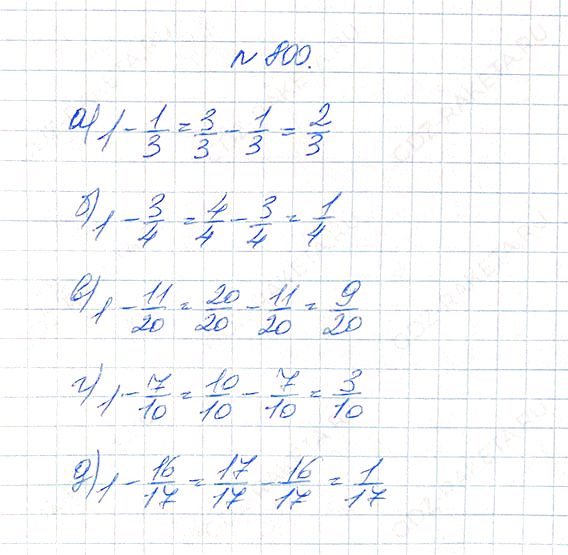 № 800.
а) 1 - 1/3 = 3/3 - 1/3 = 2/3
б) 1 - 3/4 = 4/4 - 3/4 = 1/4
в) 1 - 11/20 = 20/20 - 11/20 = 9/20
г) 1 - 7/10 = 10/10 - 7/10 = 3/10
д) 1 - 16/17 = 17/17 - 16/17 = 1/17